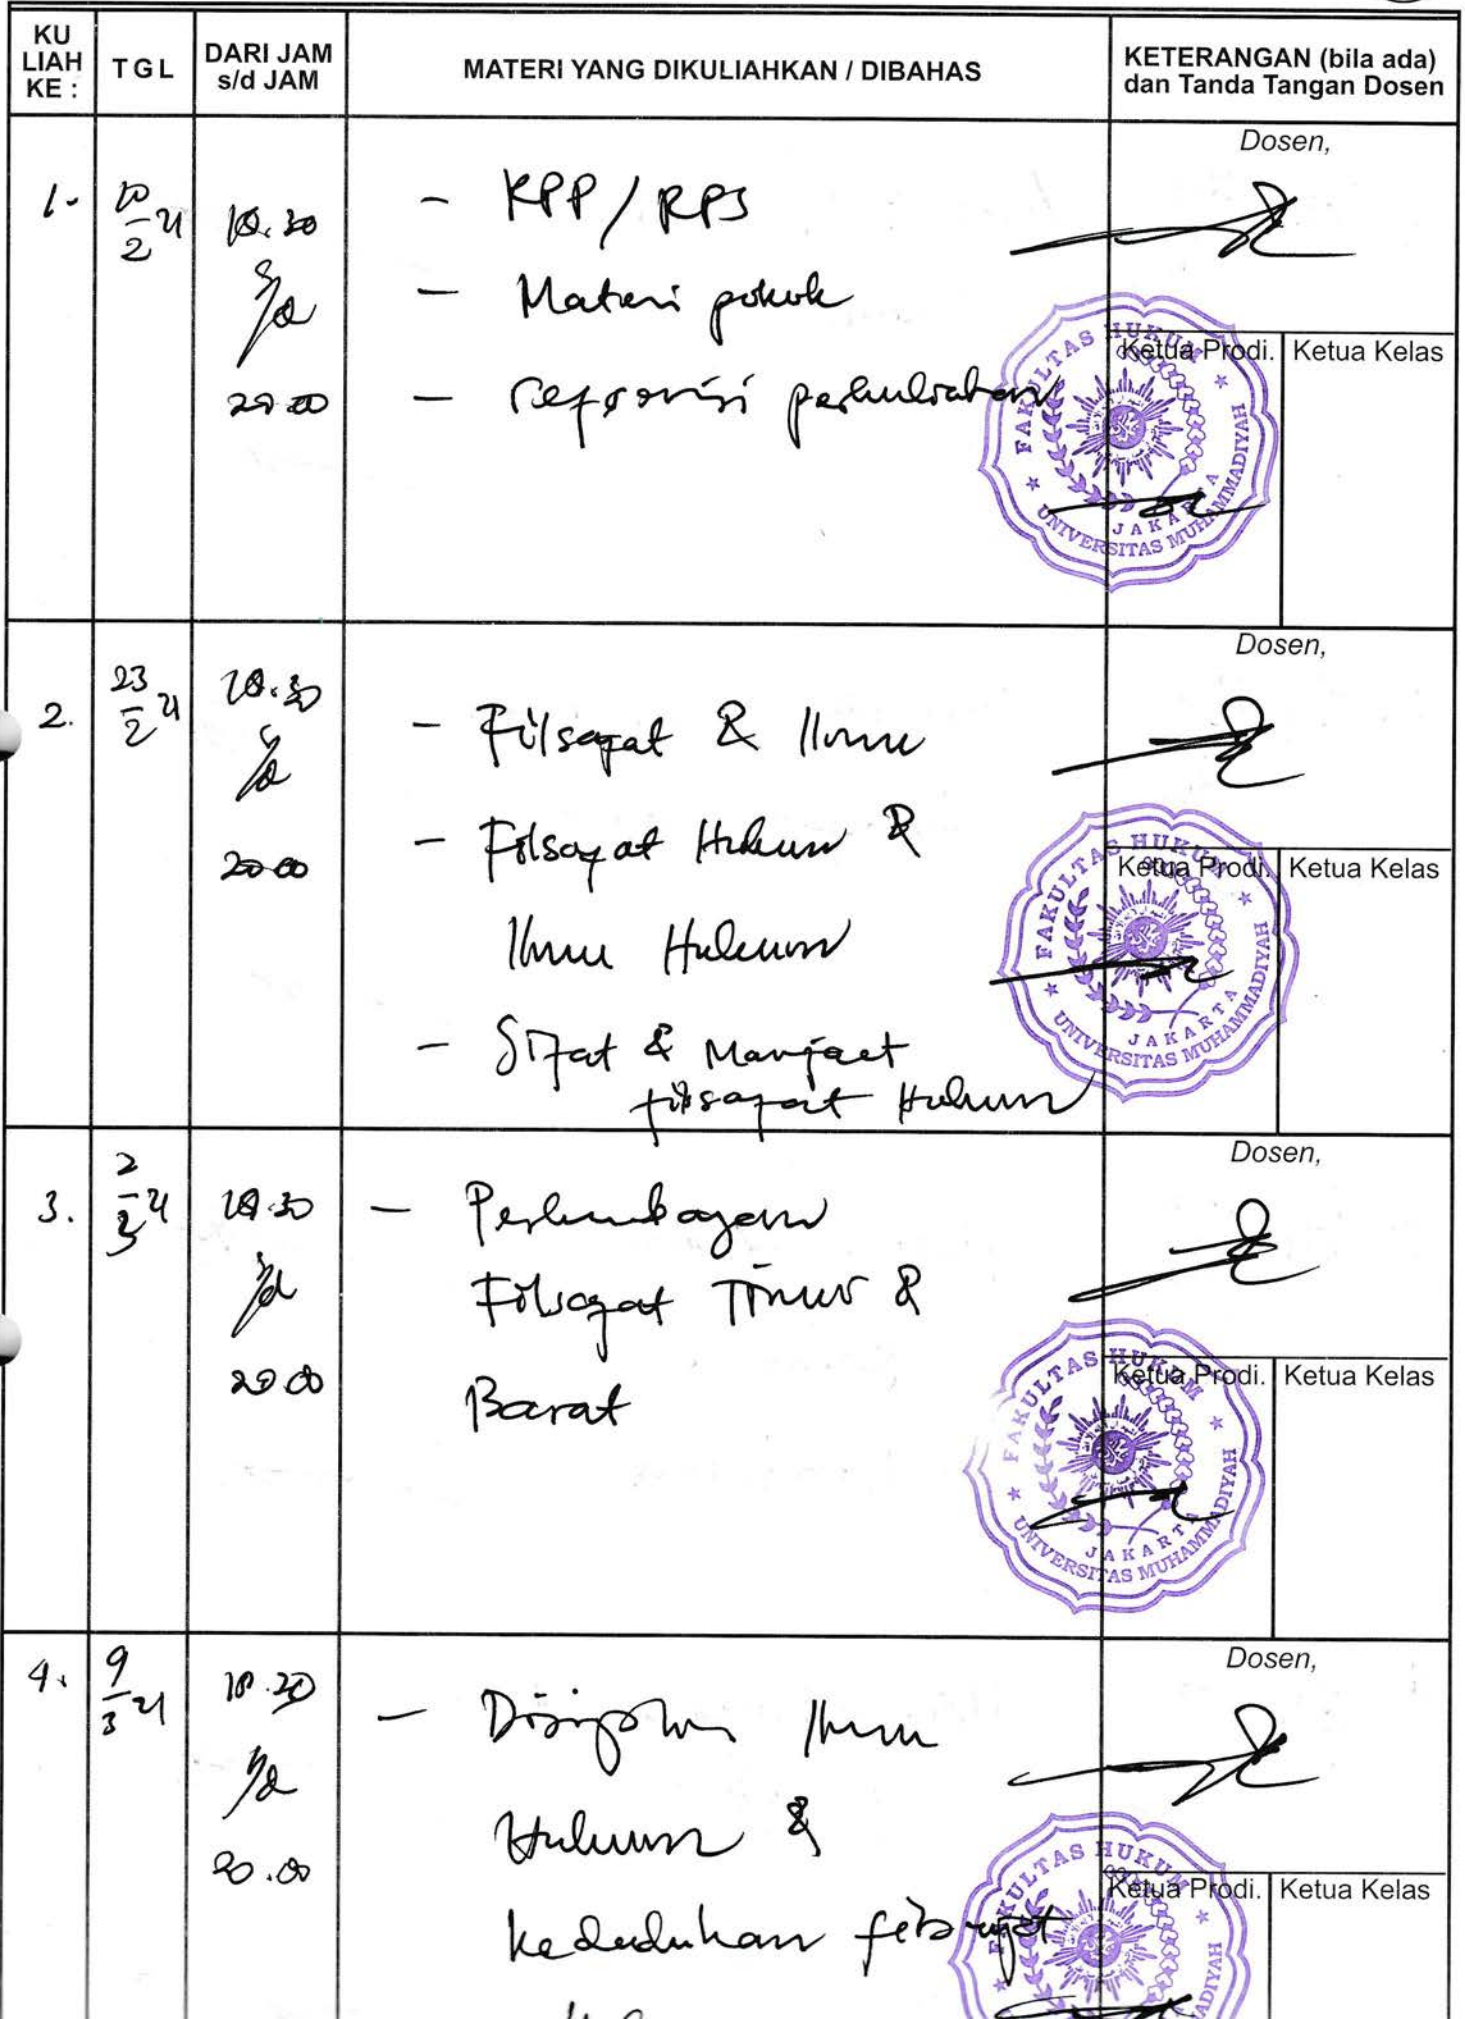 KU LIAH KE :
TGL
DARI JAM s/d JAM
MATERI YANG DIKULIAHKAN / DIBAHAS
KETERANGAN (bila ada) dan Tanda Tangan Dosen
1.
2 21
18.30
s/d
20.00
- KPP / RPS
- Materi pokok
- perkuliahan
Dosen,
Ketua Prodi.
Ketua Kelas
FAKULTAS HUKUM
UNIVERSITAS MUHAMMADIYAH
JAKARTA
2.
23/2 21
18.30
s/d
20.00
- Filsafat & Ilmu
- Filsafat Hukum &
Ilmu Hukum
- Sifat & Manfaat
filsafat Hukum
Dosen,
Ketua Prodi.
Ketua Kelas
FAKULTAS HUKUM
UNIVERSITAS MUHAMMADIYAH
JAKARTA
3.
2/3 21
18.30
s/d
20.00
- Perkembangan
Filsafat Timur &
Barat
Dosen,
Ketua Prodi.
Ketua Kelas
FAKULTAS HUKUM
UNIVERSITAS MUHAMMADIYAH
JAKARTA
4.
9/3 21
18.30
s/d
20.00
- Disiplin Ilmu
Hukum &
kedudukan filsafat
Dosen,
Ketua Prodi.
Ketua Kelas
FAKULTAS HUKUM